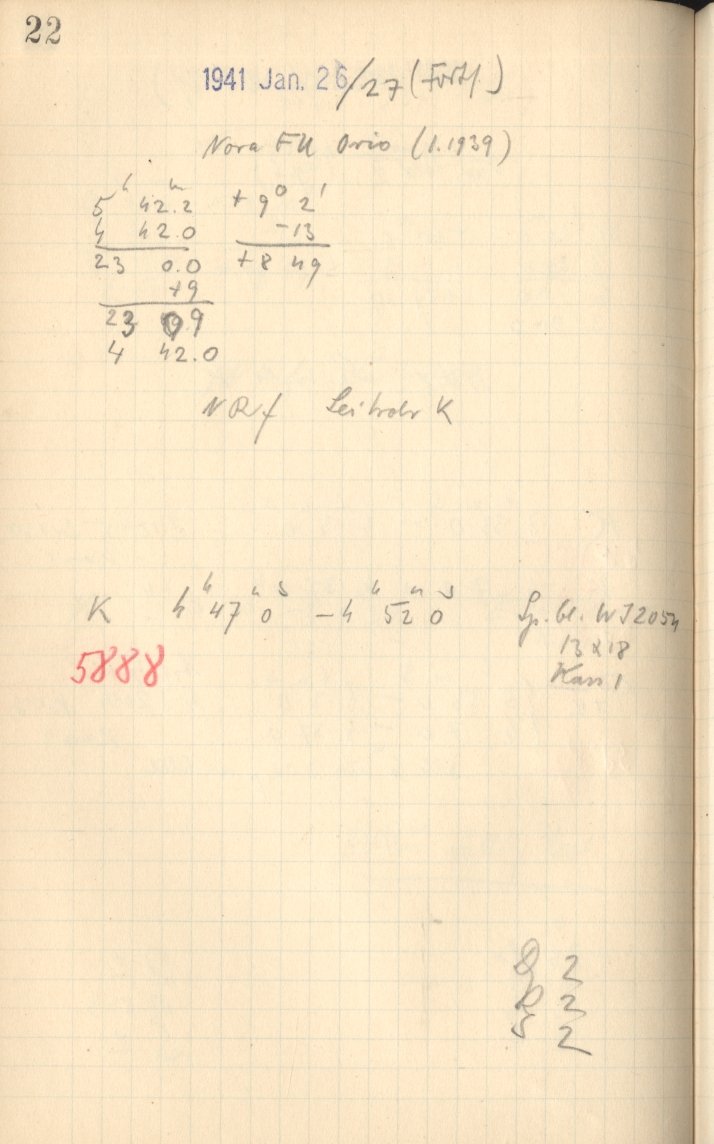 22
1941 Jan. 26/27 (Fortf.)
Nova FU Orio (1.1939)
5ʰ 42.2ᵐ +9° 2'
4 42.0 -13
23 0.0 +8 49
+9
23 09
4 42.0
NRf Leitrohr K
K 4ʰ 47ᵐ 0ˢ – 4ʰ 52ᵐ 0ˢ Sp. bl. WJ 2054
13x18
Kass 1
5888
D 2
R 2
S 2